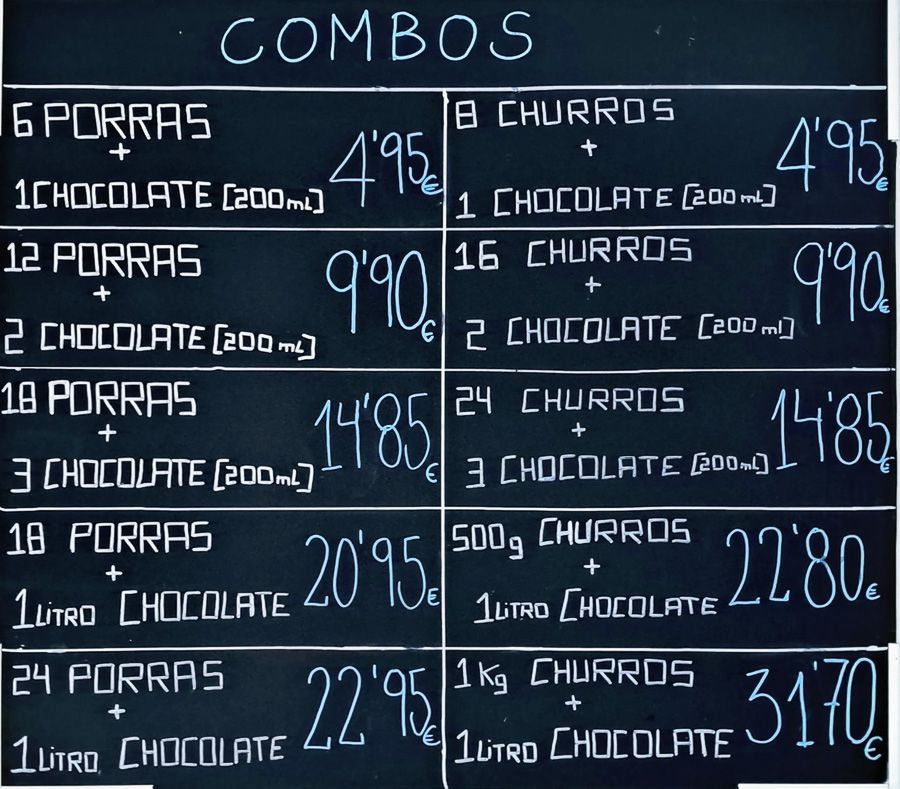 COMBOS
6 PORRAS
+
1 CHOCOLATE [200mL]
4'95€
8 CHURROS
+
1 CHOCOLATE [200mL]
4'95€
12 PORRAS
+
2 CHOCOLATE [200mL]
9'90€
16 CHURROS
+
2 CHOCOLATE [200ml]
9'90€
18 PORRAS
+
3 CHOCOLATE [200mL]
14'85€
24 CHURROS
+
3 CHOCOLATE [200mL]
14'85€
18 PORRAS
+
1LITRO CHOCOLATE
20'95€
500g CHURROS
+
1LITRO CHOCOLATE
22'80€
24 PORRAS
+
1LITRO CHOCOLATE
22'95€
1Kg CHURROS
+
1LITRO CHOCOLATE
31'70€